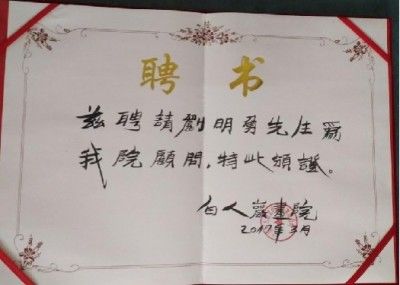 聘书
兹聘請劉明勇先生爲
我院顧問,特此頒證。
白人巖畫院
2017年3月